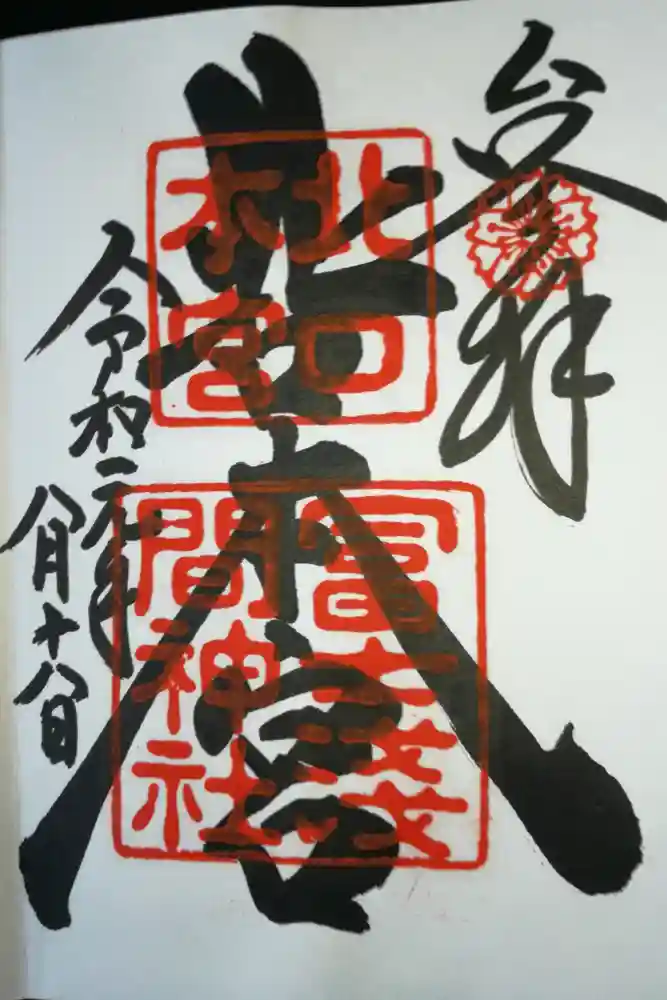 奉拝
北口本宮
北口
本宮
冨士淺
間神社
令和二年
八月十八日